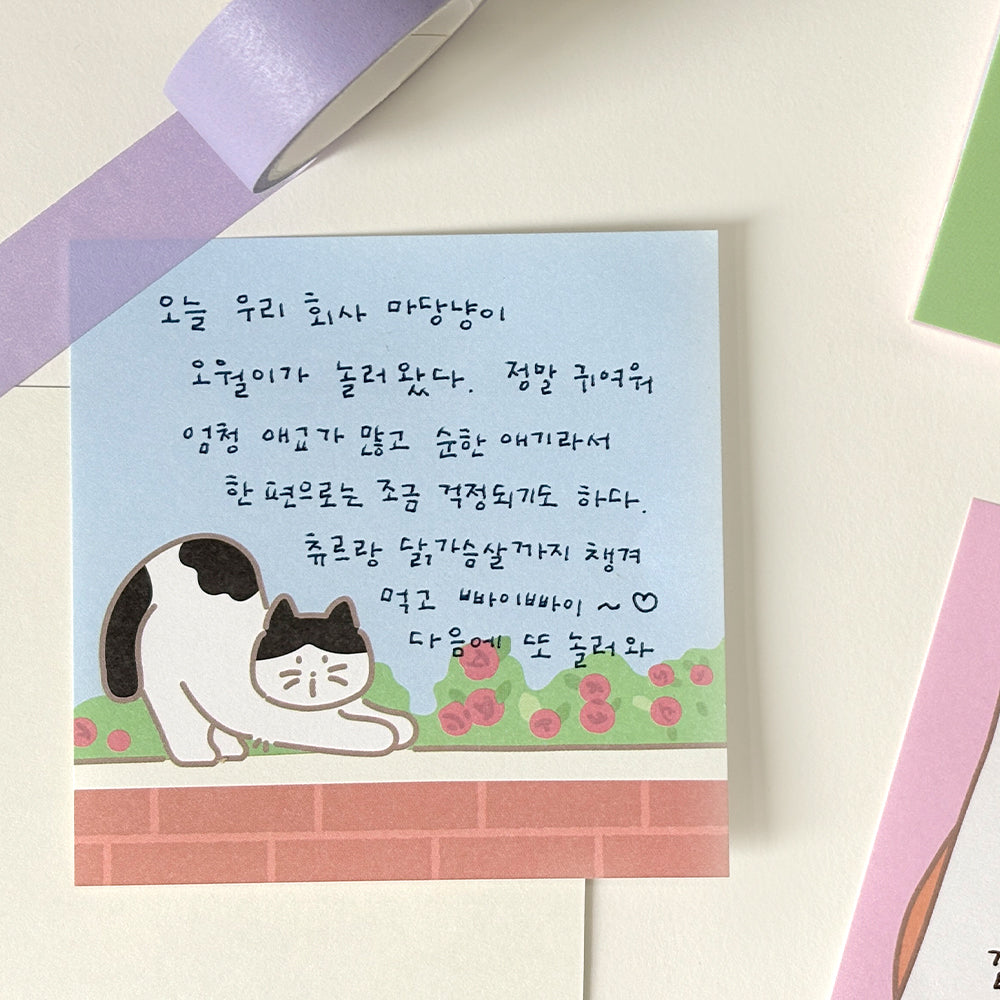 오늘 우리 회사 마당냥이
오월이가 놀러왔다. 정말 귀여워
엄청 애교가 많고 순한 애기라서
한편으로는 조금 걱정되기도 하다.
츄르랑 닭가슴살까지 챙겨
먹고 빠이빠이 ~ ♡
다음에 또 놀러와